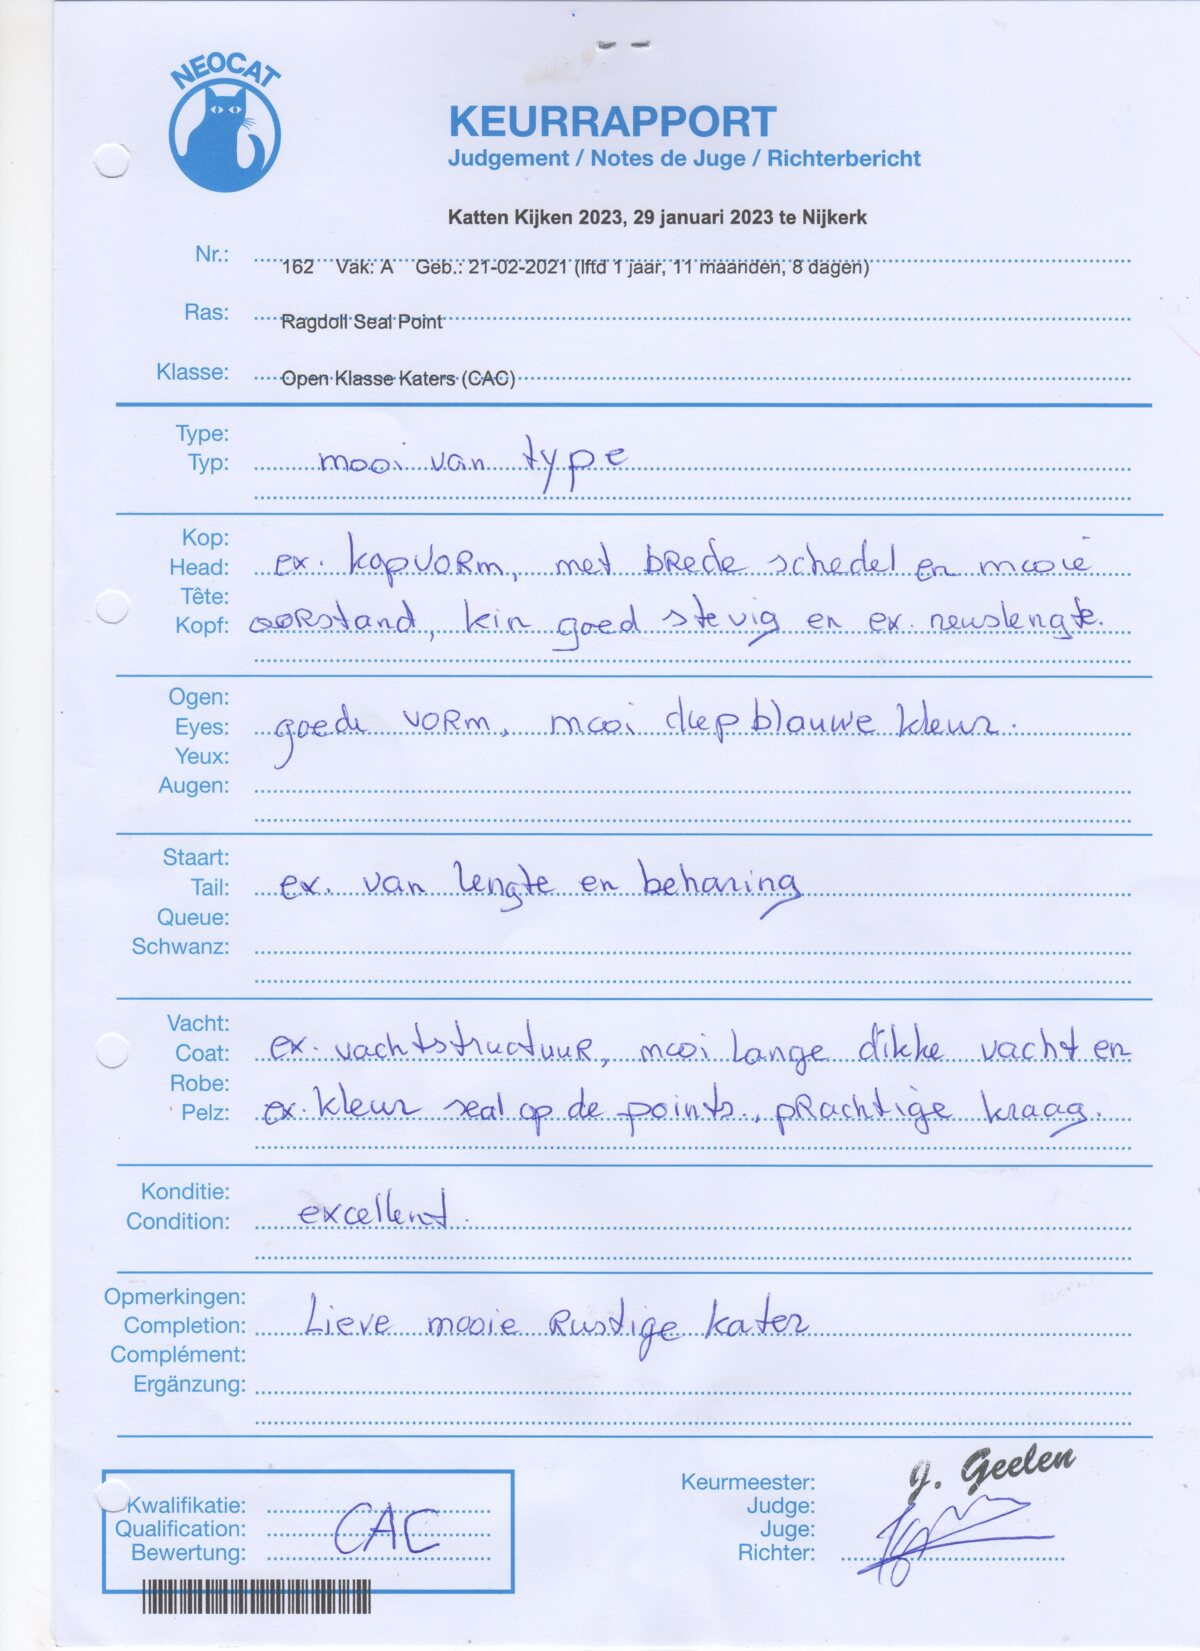 NEOCAT
KEURRAPPORT
Judgement / Notes de Juge / Richterbericht
Katten Kijken 2023, 29 januari 2023 te Nijkerk
Nr.: 162 Vak: A Geb.: 21-02-2021 (lftd 1 jaar, 11 maanden, 8 dagen)
Ras: Ragdoll Seal Point
Klasse: Open Klasse Katers (CAC)
Type:
Typ: mooi van type
Kop:
Head: ex. kopvorm, met brede schedel en mooie
Tête:
Kopf: oorstand, kin goed stevig en ex. neuslengte.
Ogen:
Eyes: goede vorm, mooi diepblauwe kleur.
Yeux:
Augen:
Staart:
Tail: ex. van lengte en beharing
Queue:
Schwanz:
Vacht:
Coat: ex. vachtstructuur, mooi lange dikke vacht en
Robe:
Pelz: ex. kleur seal op de points, prachtige kraag.
Konditie:
Condition: excellent.
Opmerkingen:
Completion: Lieve mooie Rustige kater
Complément:
Ergänzung:
J. Geelen
Keurmeester:
Kwalifikatie: Judge:
Qualification: CAC Juge:
Bewertung: Richter: